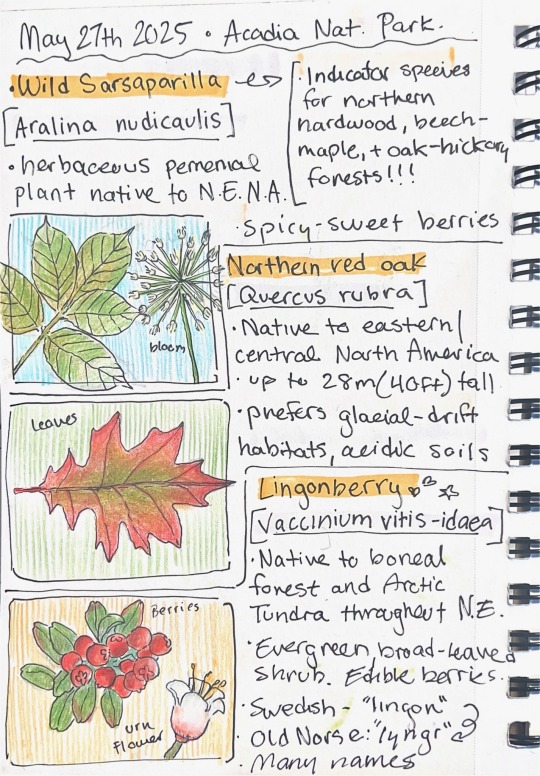 May 27th 2025 • Acadia Nat. Park.
• Wild Sarsaparilla
[Aralina nudicaulis]
• herbaceous perennial
plant native to N.E.N.A.
• Indicator species
for northern
hardwood, beech-
maple, + oak-hickory
forests!!!
• spicy-sweet berries
bloom
Northern red oak
[Quercus rubra]
• Native to eastern/
central North America
• up to 28m (40ft) tall
• prefers glacial-drift
habitats, acidic soils
leaves
Lingonberry
[Vaccinium vitis-idaea]
• Native to boreal
forest and Arctic
Tundra throughout N.E.
• Evergreen broad-leaved
shrub. Edible berries.
• Swedish - "lingon"
• Old Norse: "lyngr"
• Many names
Berries
urn
flower